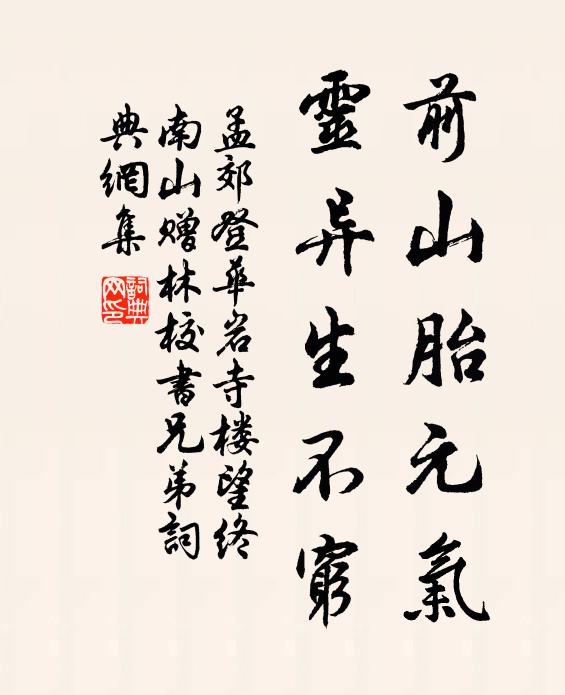 前山胎元氣
靈异生不窮
孟郊登華岩寺楼望終
南山贈林校書兄弟詞
典網集
詞典
网印